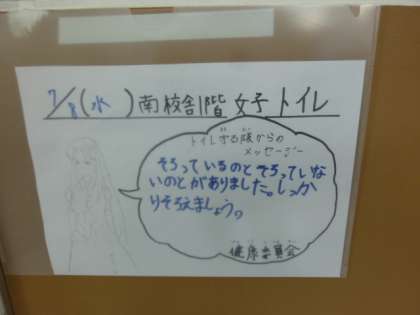 7/8(水)南校舎1階女子トイレ
トイレ守る隊からの
メッセージー
そろっているのとそろっていな
いのとがありました。しっか
りそろえましょう。
健康委員会